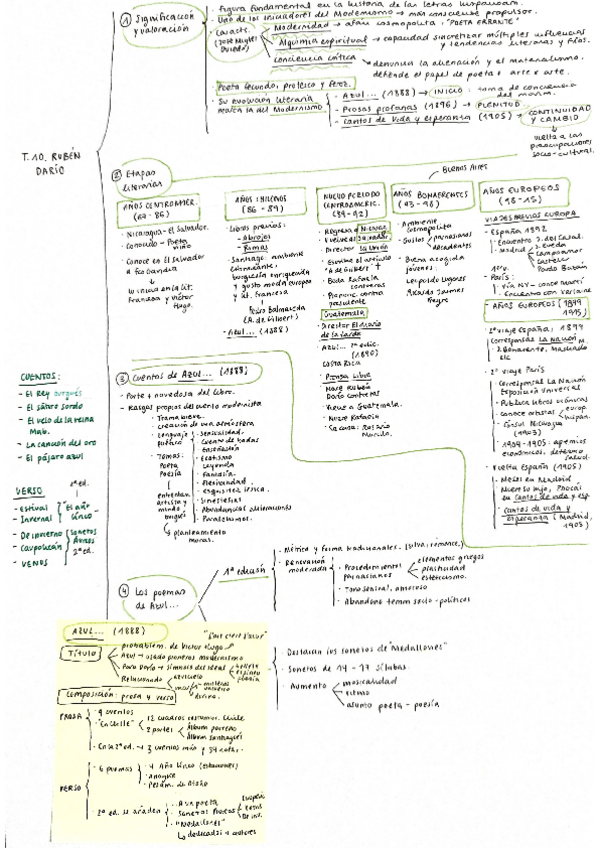 ① Significación y valoración
· Figura fundamental en la historia de las letras hispanoam.
· Uno de los iniciadores del Modernismo → más consciente propulsor.
Caract.
(José Miguel Oviedo)
Modernidad → afán cosmopolita, "POETA ERRANTE"
Alquimia espiritual → capacidad sincretizar múltiples influencias
y tendencias literarias y filos.
Conciencia crítica
denuncia la alienación y el materialismo.
defiende el papel de poeta + arte x arte.
· Poeta fecundo, prolífico y feroz.
· Su evolución literaria
marca la del Modernismo
· Azul... (1888) → INICIO: toma de conciencia
del movim.
· Prosas profanas (1896) → PLENITUD
· Cantos de vida y esperanza (1905) → CONTINUIDAD
Y CAMBIO
vuelta a las
preocupaciones
socio-cultural.
T.10. RUBÉN
DARÍO
② Etapas
literarias
Buenos Aires
AÑOS CENTROAMER.
(67-86)
· Nicaragua - El Salvador.
· Conocido → Poeta niño
· Conoce en El Salvador
a Fco Gandia
↓
lo inicia en la lit.
Francesa y Víctor
Hugo.
AÑOS CHILENOS
(86-89)
· Libros previos:
- Abrojos
- Rimas
· Santiago: ambiente
burguesía enriquecida
y gusto moda europea
y lit. francesa
↓
Pedro Balmaceda
(A. de Gilbert)
· Azul... (1888)
NUEVO PERIODO
CENTROAMERIC.
(89-92)
· Regresa a Nicarag.
· Director La Unión
"A de Gilbert" †
· Boda Rafaela
Contreras
presidente
Guatemala
· Director El diario
de la tarde
Azul... 2ª edic.
(1890)
COSTA RICA
· Prensa Libre
· Nace Rubén
Darío Contreras
· Vuelve a Guatemala.
· Muere Rafaela
· Se casa: Rosario
Murillo.
AÑOS BONAERENSES
(93-98)
· Ambiente
cosmopolita
· Gustos
parnasianos
decadentes
· Buena acogida
jóvenes:
Leopoldo Lugones
Ricardo Jaimes
Freyre
AÑOS EUROPEOS
(98-15)
VIAJES PREVIOS EUROPA
· España 1892
Madrid
Campoamor
Castelar
Pardo Bazán
· París:
Vía NY - conoce Martí
Encuentro con Verlaine
AÑOS EUROPEOS (1899
1915)
· 2º viaje España, 1899
Corresponsal La Nación
J. Benavente, Machado
etc
· 2º viaje París
· Corresponsal La Nación
Exposición Universal
· Publica libros crónicas
· Conoce artistas
europ.
hispan.
· Cónsul Nicaragua
(1903)
· 1909-1905: apremios
económicos, deterio.
salud.
· Vuelta España (1905)
· Meses en Madrid
· Cantos de vida y
esperanza (Madrid,
1905)
③ Cuentos de AZUL... (1888)
· Parte + novedosa del libro.
· Rasgos propios del cuento modernista
· Trama breve
· creación de una atmósfera
· Lenguaje
poético
· Temas:
Poeta
Poesía
↓
artista y
mundo
burgués
↳ planteamiento
moral.
· Sensualidad.
· Cuento de hadas
· Exotismo
· Leyenda
· Fantasía.
· Plasticidad
· exquisitez léxica.
· Sinestesias
· Abundancia aliteraciones
· Paralelismos.
CUENTOS:
- El Rey burgués
- El sátiro sordo
- El velo de la reina
Mab.
- La canción del oro
- El pájaro azul
VERSO
1ª ed.
- Estival
- Invernal
"El año
lírico"
- De invierno
- Caupolicán
- VENUS
Sonetos
2ª ed.
④ Los poemas
de Azul...
1ª edición
· Métrica y forma tradicionales. (silva, romance,)
· Renovación
moderada
· Procedimientos
parnasianos
elementos griegos
plasticidad
esteticismo.
· Tono sensual, amoroso
· Abandono temas socio-políticos
· Destacan los sonetos de "Medallones"
· Sonetos de 14-17 sílabas.
· Aumento
musicalidad
ritmo
asunto poeta - poesía
AZUL... (1888)
Título
probablem. de Víctor Hugo
Azul → usado pioneros modernismo
Para Darío → símbolo del ideal
Relacionado
Composición: prosa y verso
PROSA
· 9 cuentos
· "En Chile"
12 cuadros costumbr. Chile
2 partes
Álbum porteño
Álbum santiagués
· En la 2ª ed. → 3 cuentos más y 34 notas.
VERSO
· 6 poemas
· 4 Año lírico (estaciones)
· Anagke
· 2ª ed. se añaden
· A un poeta
· "Medallones"
↳ dedicados → autores